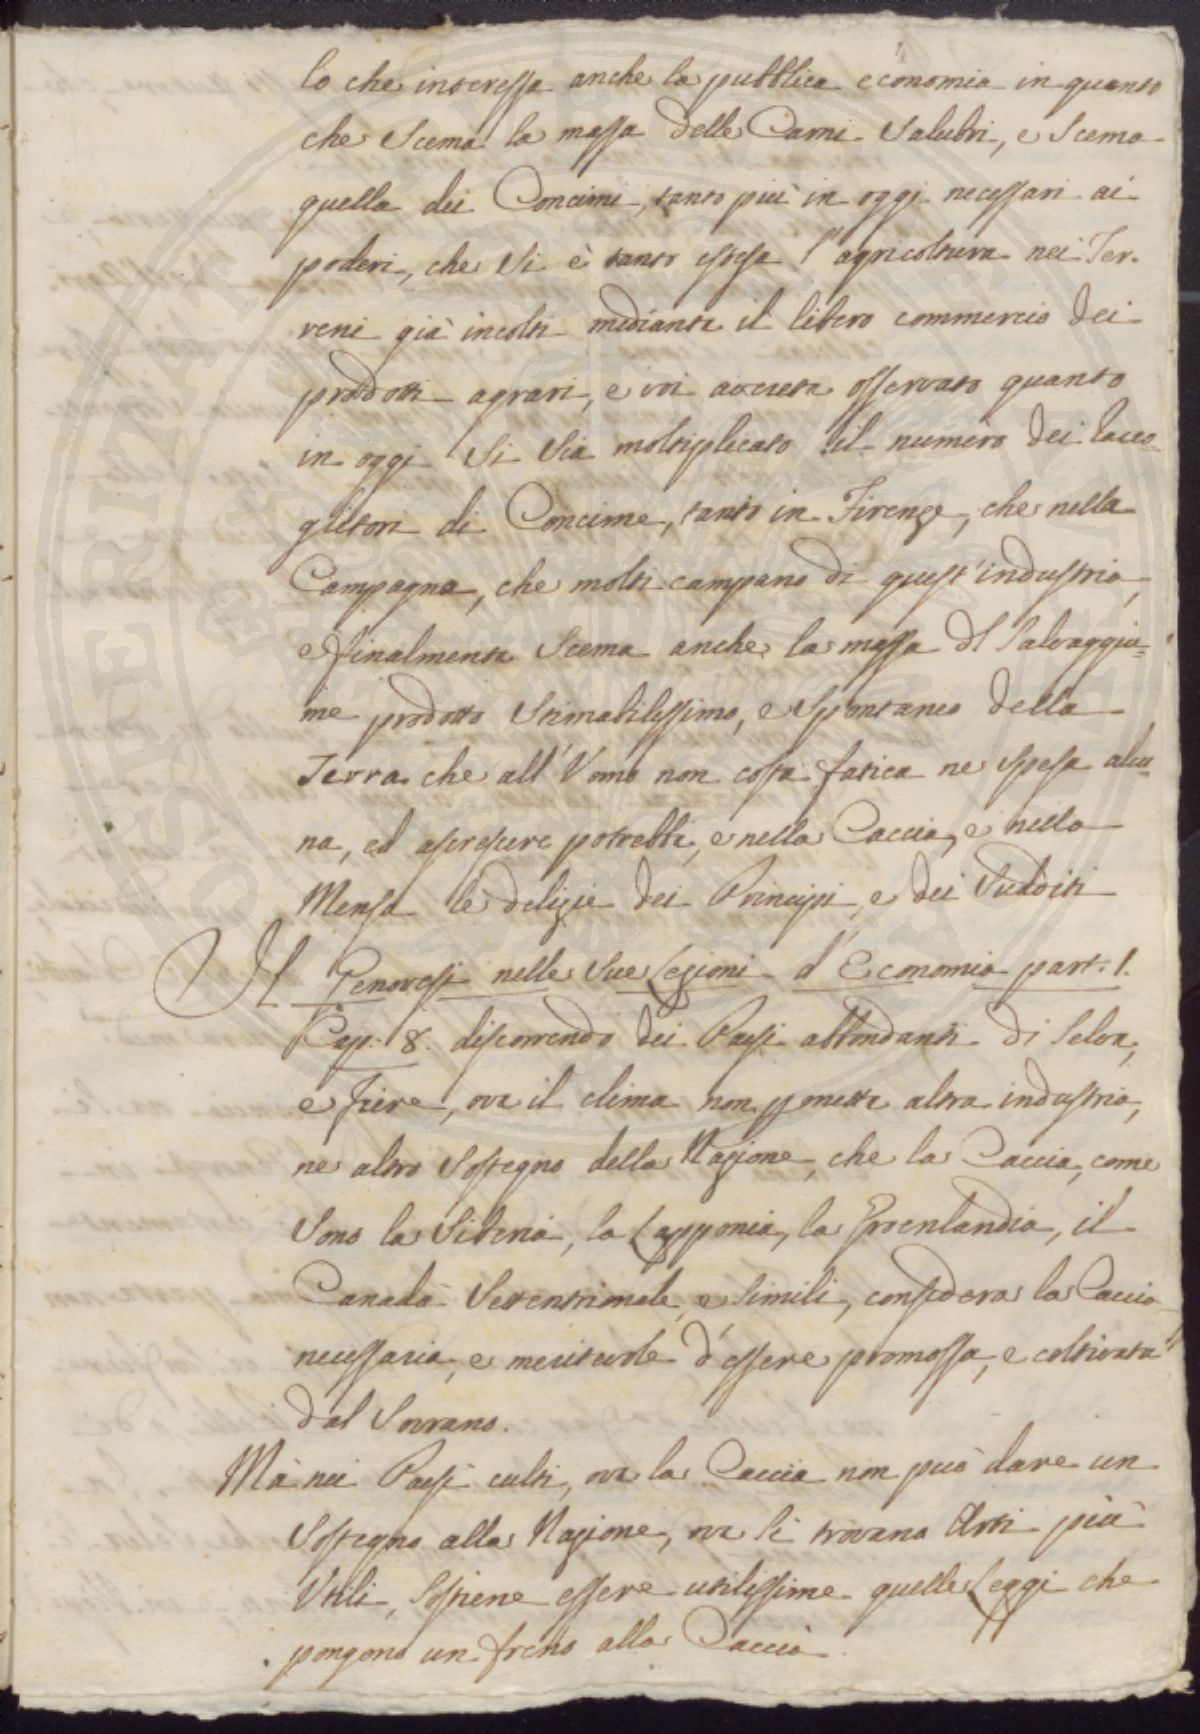 lo che interessa anche la pubblica economia in quanto
che Scema la massa delle Carni Salubri, e Scema
quella dei Concimi, tanto più in oggi necessari ai
poderi, che Si è tanto estesa l'agricoltura nei Ter-
reni già incolti mediante il libero commercio dei
prodotti agrari, e voi averete osservato quanto
in oggi Si Sia moltiplicato il numero dei racco-
glitori di Concime, tanto in Firenze, che nella
Campagna, che molti campano di quest'industria,
e finalmente Scema anche la massa dl Salvaggiu-
me prodotto Stimabilissimo, e Spontaneo della
Terra che all'Vomo non costa fatica ne Spesa alcu-
na, ed accrescere potrebbe, e nella Caccia, e nella
Mensa le delizie dei Principi, e dei Sudditi
Il Genovesi nelle Sue Lezioni d'Economia part. 1.
Cap. 8. discorrendo dei Paesi abbondanti di Selve,
e Fiere, ove il clima non permette altra industria,
ne altro Sostegno della Nazione, che la Caccia, come
Sono la Siberia, la Lapponia, la Groenlandia, il
Canadà Settentrionale, e Simili, considera la Caccia
necessaria, e meritevole d'essere promossa, e coltivata
dal Sovrano.
Mà nei Paesi culti, ove la Caccia non può dare un
Sostegno alla Nazione, ove Si trovano Arti più
Utili, Sostiene essere utilissime quelle Leggi che
pongono un freno alla Caccia.